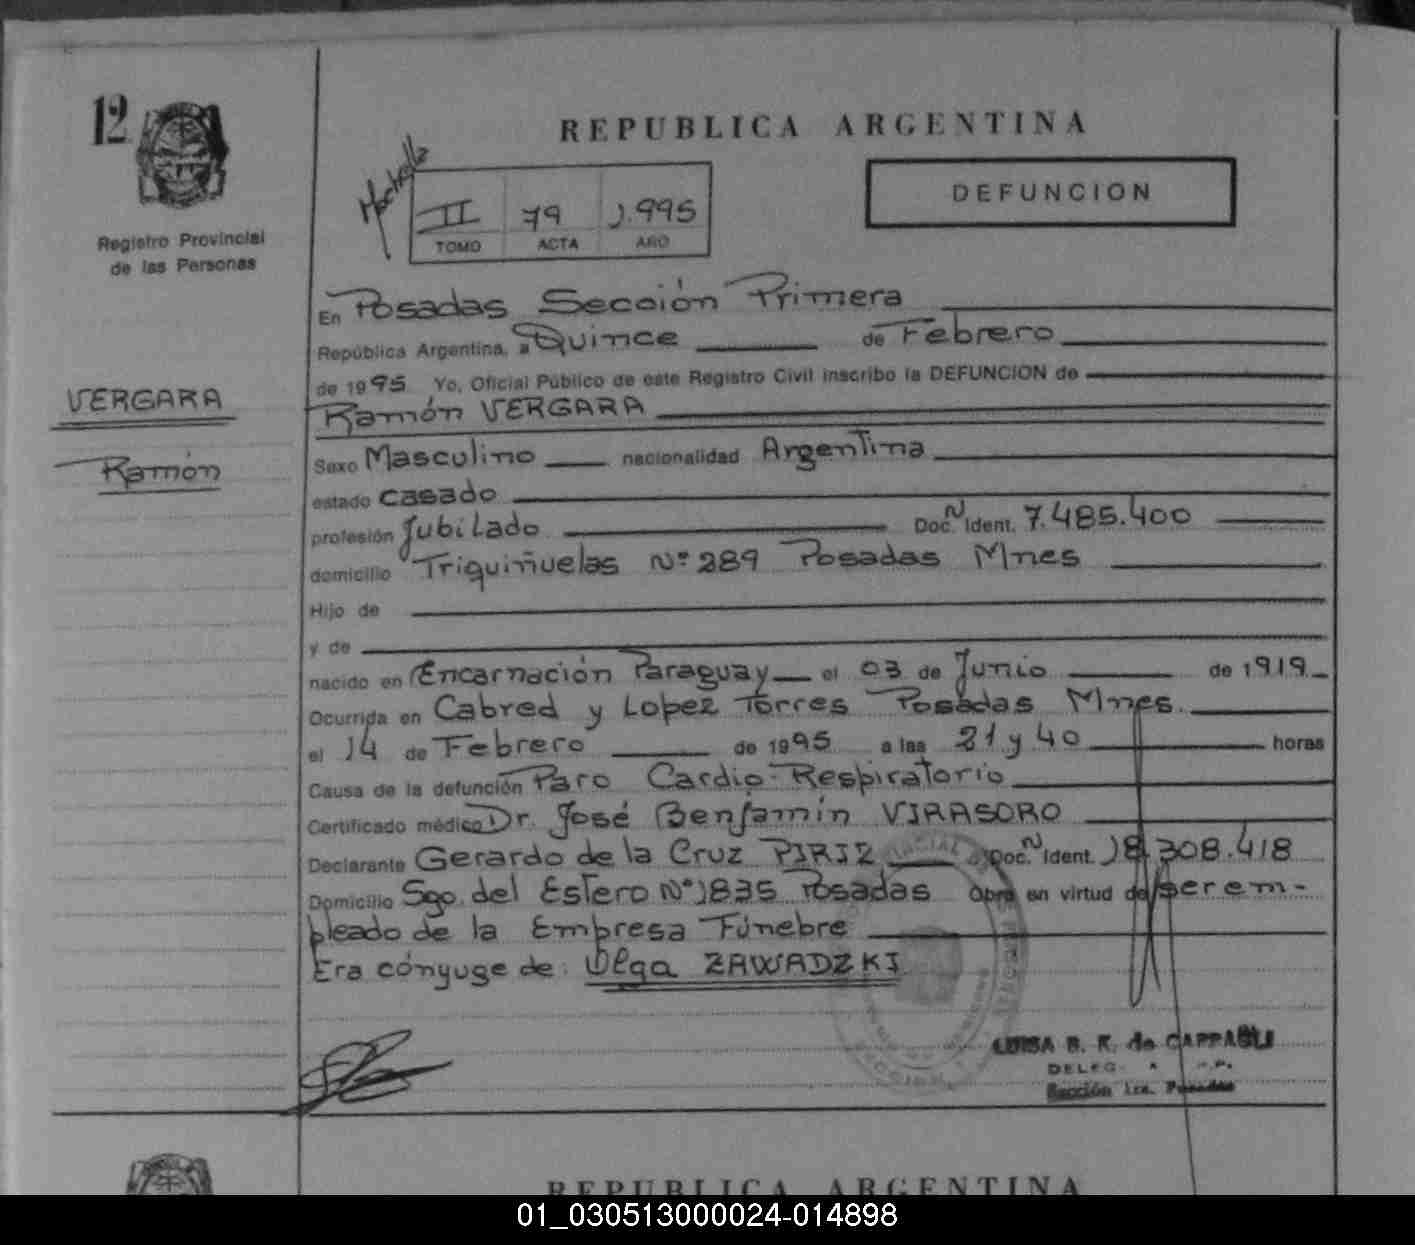 12
REPUBLICA ARGENTINA
DEFUNCION
II 79 1.995
TOMO ACTA AÑO
Registro Provincial
de las Personas
VERGARA
Ramón
En Posadas Sección Primera
República Argentina, a Quince de Febrero
de 1995 Yo, Oficial Público de este Registro Civil inscribo la DEFUNCION de
Ramón VERGARA
Sexo Masculino nacionalidad Argentina
estado casado
profesión Jubilado Doc. N Ident. 7.485.400
domicilio Triquiñuelas Nº 289 Posadas Mnes
Hijo de
y de
nacido en Encarnación Paraguay el 03 de Junio de 1919
Ocurrida en Cabred y Lopez Torres Posadas Mnes.
el 14 de Febrero de 1995 a las 21 y 40 horas
Causa de la defunción Paro Cardio-Respiratorio
Certificado médico Dr. José Benjamín VIRASORO
Declarante Gerardo de la Cruz PIRIZ Doc. N Ident. 18.308.418
Domicilio Sgo. del Estero Nº 1835 Posadas Obra en virtud de ser em-
pleado de la Empresa Fúnebre
Era cónyuge de: Olga ZAWADZKI
LUISA B. K. de CAPPAGLI
DELEG.
Sección 1ra. Posadas
REPUBLICA ARGENTINA
01_030513000024-014898